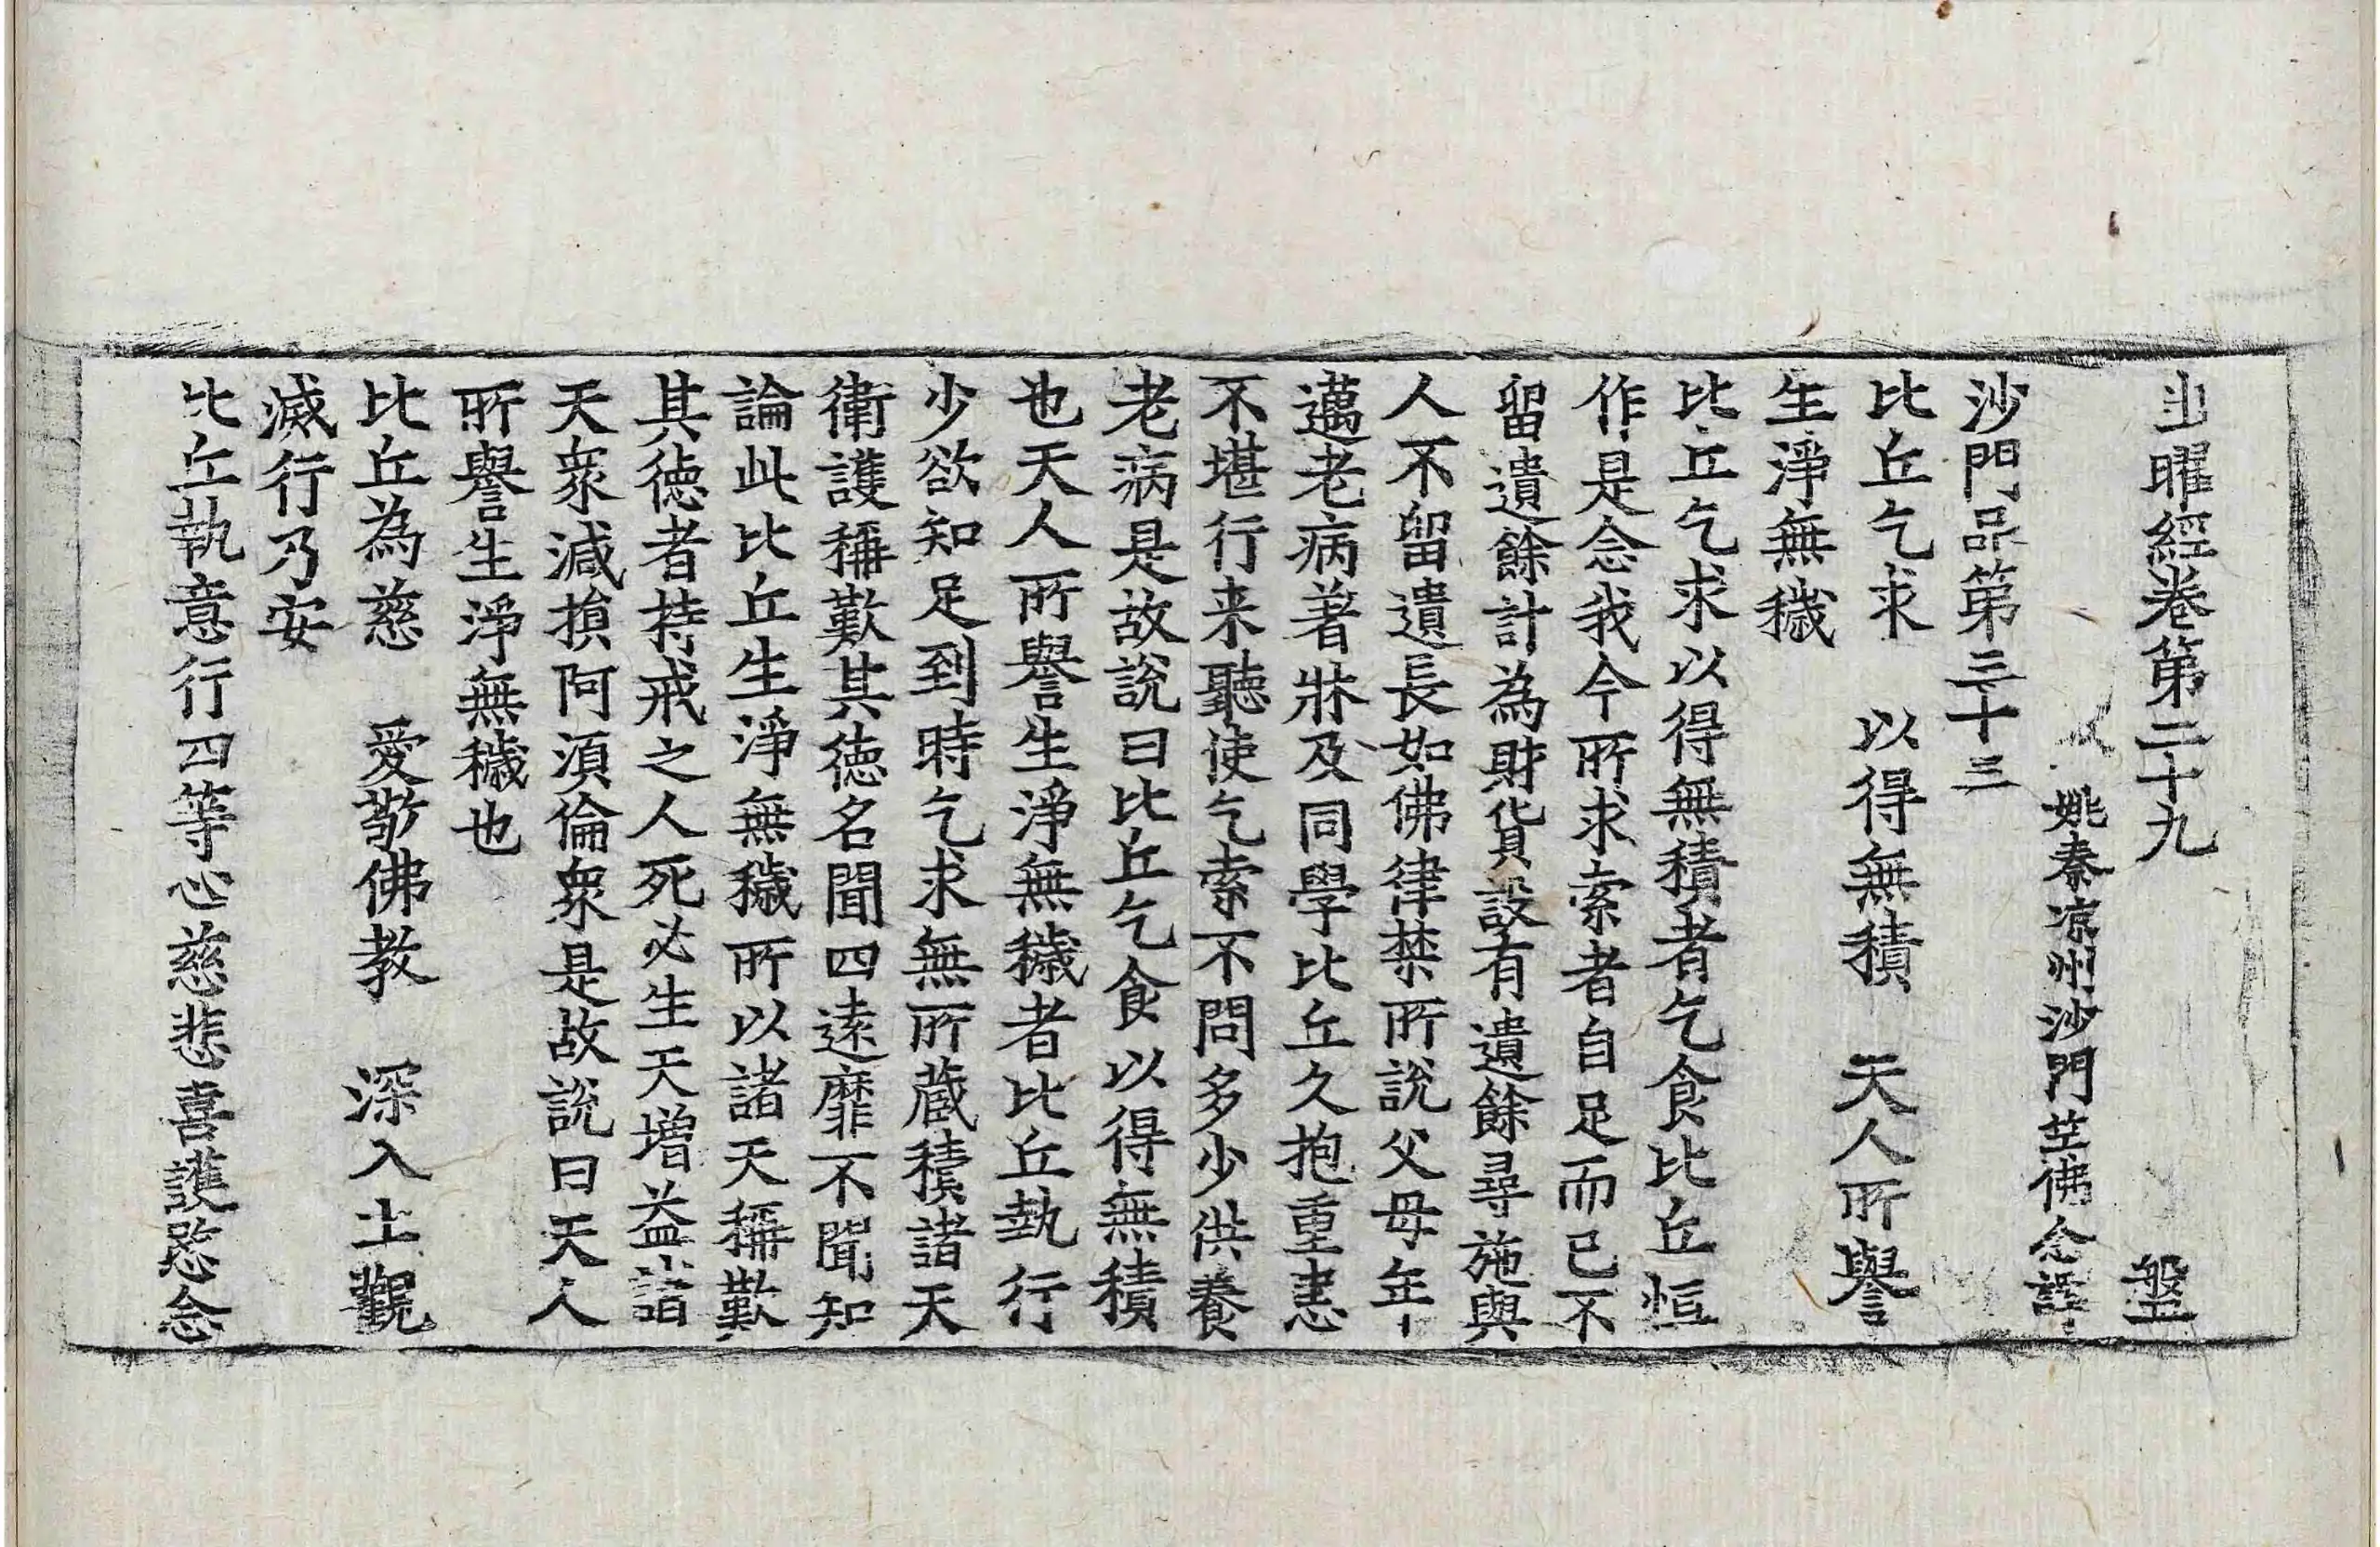 出曜經卷第二十九　盤
姚秦涼州沙門竺佛念譯
沙門品第三十三
比丘乞求　以得無積　天人所譽
生淨無穢
比丘乞求以得無積者乞食比丘恒
作是念我今所求索者自足而已不
留遺餘計為財貨設有遺餘尋施與
人不留遺長如佛律禁所說父母年
邁老病著牀及同學比丘久抱重患
不堪行来聽使乞索不問多少供養
老病是故說曰比丘乞食以得無積
也天人所譽生淨無穢者比丘執行
少欲知足到時乞求無所蔵積諸天
衛護稱歎其徳名聞四遠靡不聞知
論此比丘生淨無穢所以諸天稱歎
其徳者持戒之人死必生天增益諸
天衆減損阿須倫衆是故說曰天人
所譽生淨無穢也
比丘為慈　愛敬佛教　深入止觀
滅行乃安
比丘執意行四等心慈悲喜護愍念